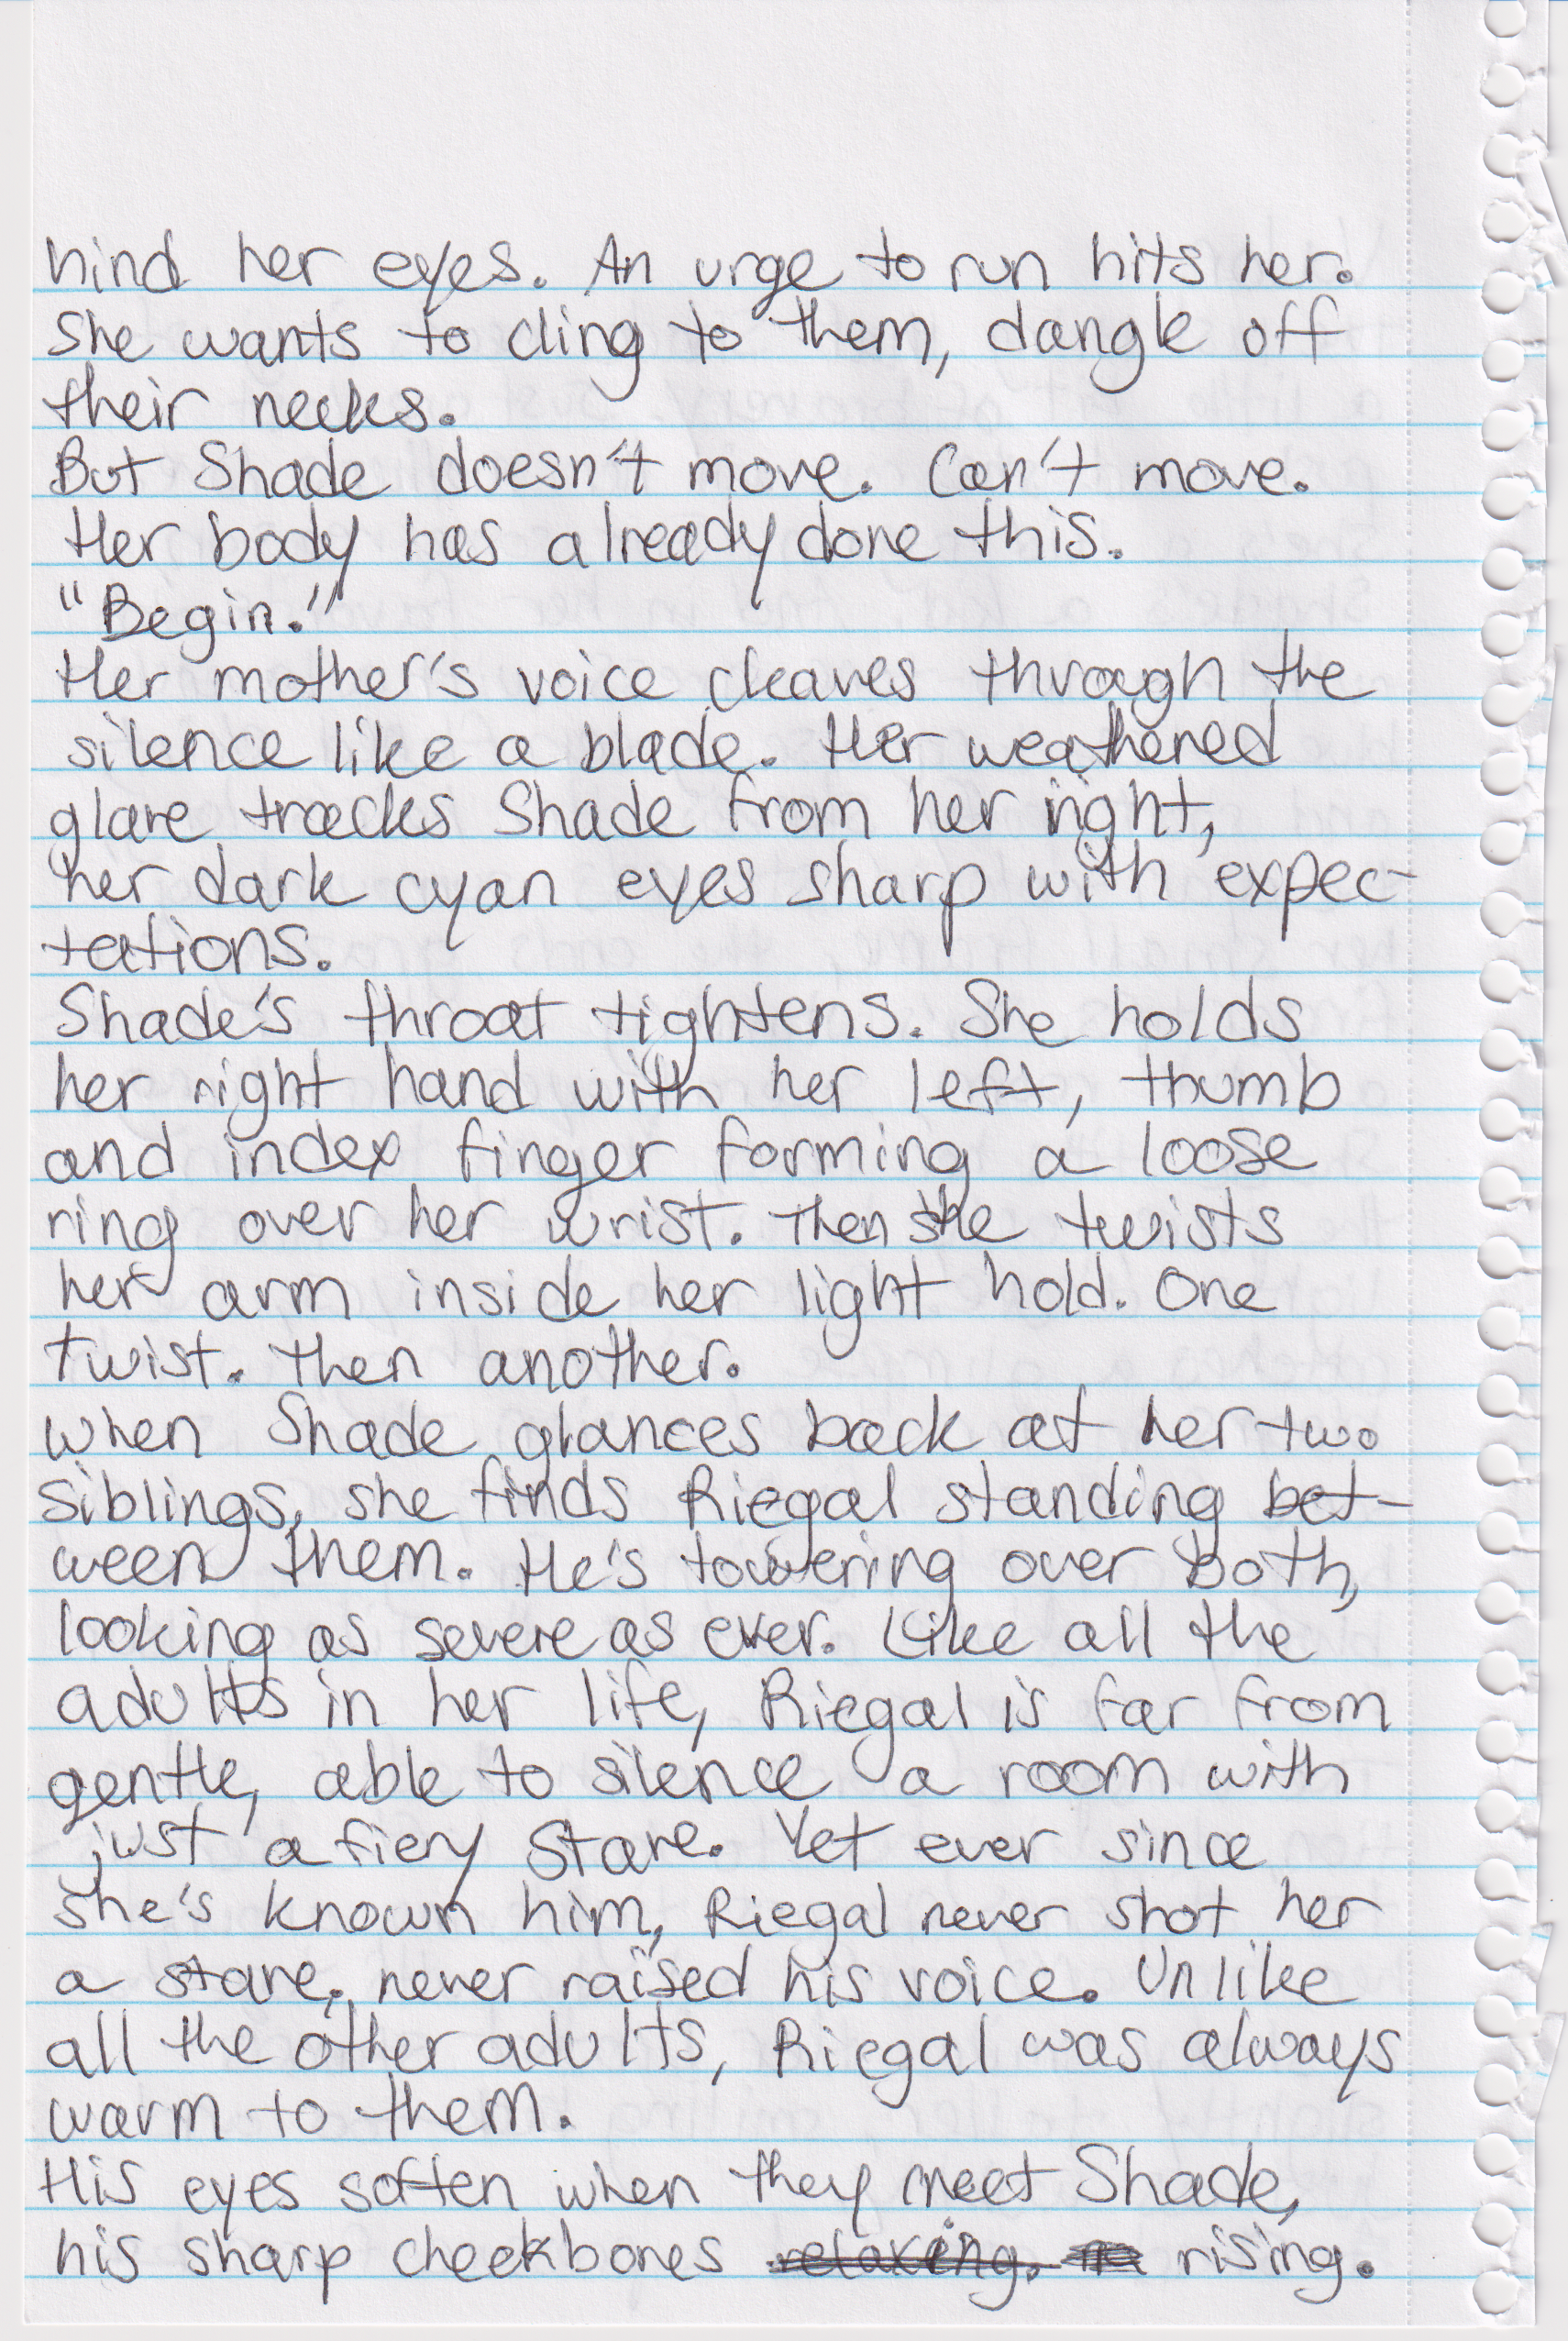 hind her eyes. An urge to run hits her.
She wants to cling to them, dangle off
their necks.
But Shade doesn't move. Can't move.
Her body has already done this.
"Begin."
Her mother's voice cleaves through the
silence like a blade. Her weathered
glare tracks Shade from her right,
her dark cyan eyes sharp with expec-
tations.
Shade's throat tightens. She holds
her right hand with her left, thumb
and index finger forming a loose
ring over her wrist. Then she twists
her arm inside her light hold. One
twist. Then another.
When Shade glances back at her two
siblings, she finds Riegal standing bet-
ween them. He's towering over both,
looking as severe as ever. Like all the
adults in her life, Riegal is far from
gentle, able to silence a room with
just a fiery stare. Yet ever since
she's known him, Riegal never shot her
a stare, never raised his voice. Unlike
all the other adults, Riegal was always
warm to them.
His eyes soften when they meet Shade,
his sharp cheekbones relaxing. rising.